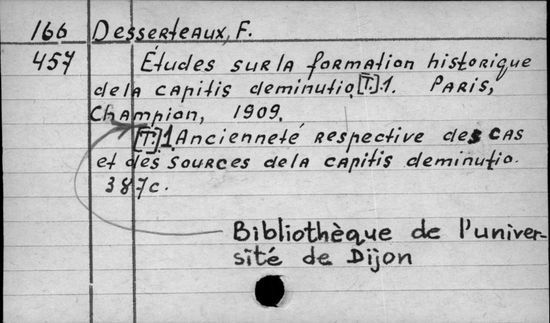 166 Desserteaux, F.
457 Études sur la formation historique
de la capitis deminutio [T.] 1. Paris,
Champion, 1909.
[T.] 1 Ancienneté respective des cas
et des sources de la capitis deminutio.
387c.
Bibliothèque de l'univer-
sité de Dijon